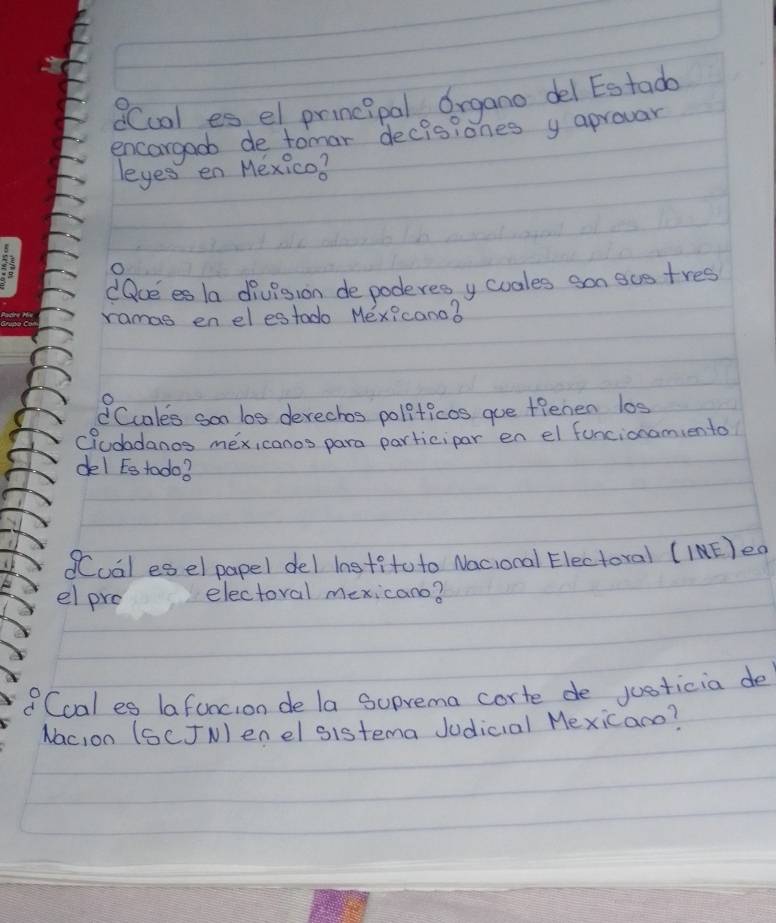 ¿Cual es el principal Órgano del Estado
encargado de tomar decisiones y aprovar
leyes en México?
¿Qué es la división de poderes y cuales son sus tres
ramas en el estado Méxicano?
¿Cuáles son los derechos politicos que tienen los
Ciudadanos méxicanos para participar en el funcionamiento
del Estado?
¿Cuál es el papel del Instituto Nacional Electoral (INE) en
el pro electoral mexicano?
¿Cual es la funcion de la Suprema corte de justicia de
Nacion (SCJN) en el sistema Judicial Mexicano?
Padre Mie
Grupo Con